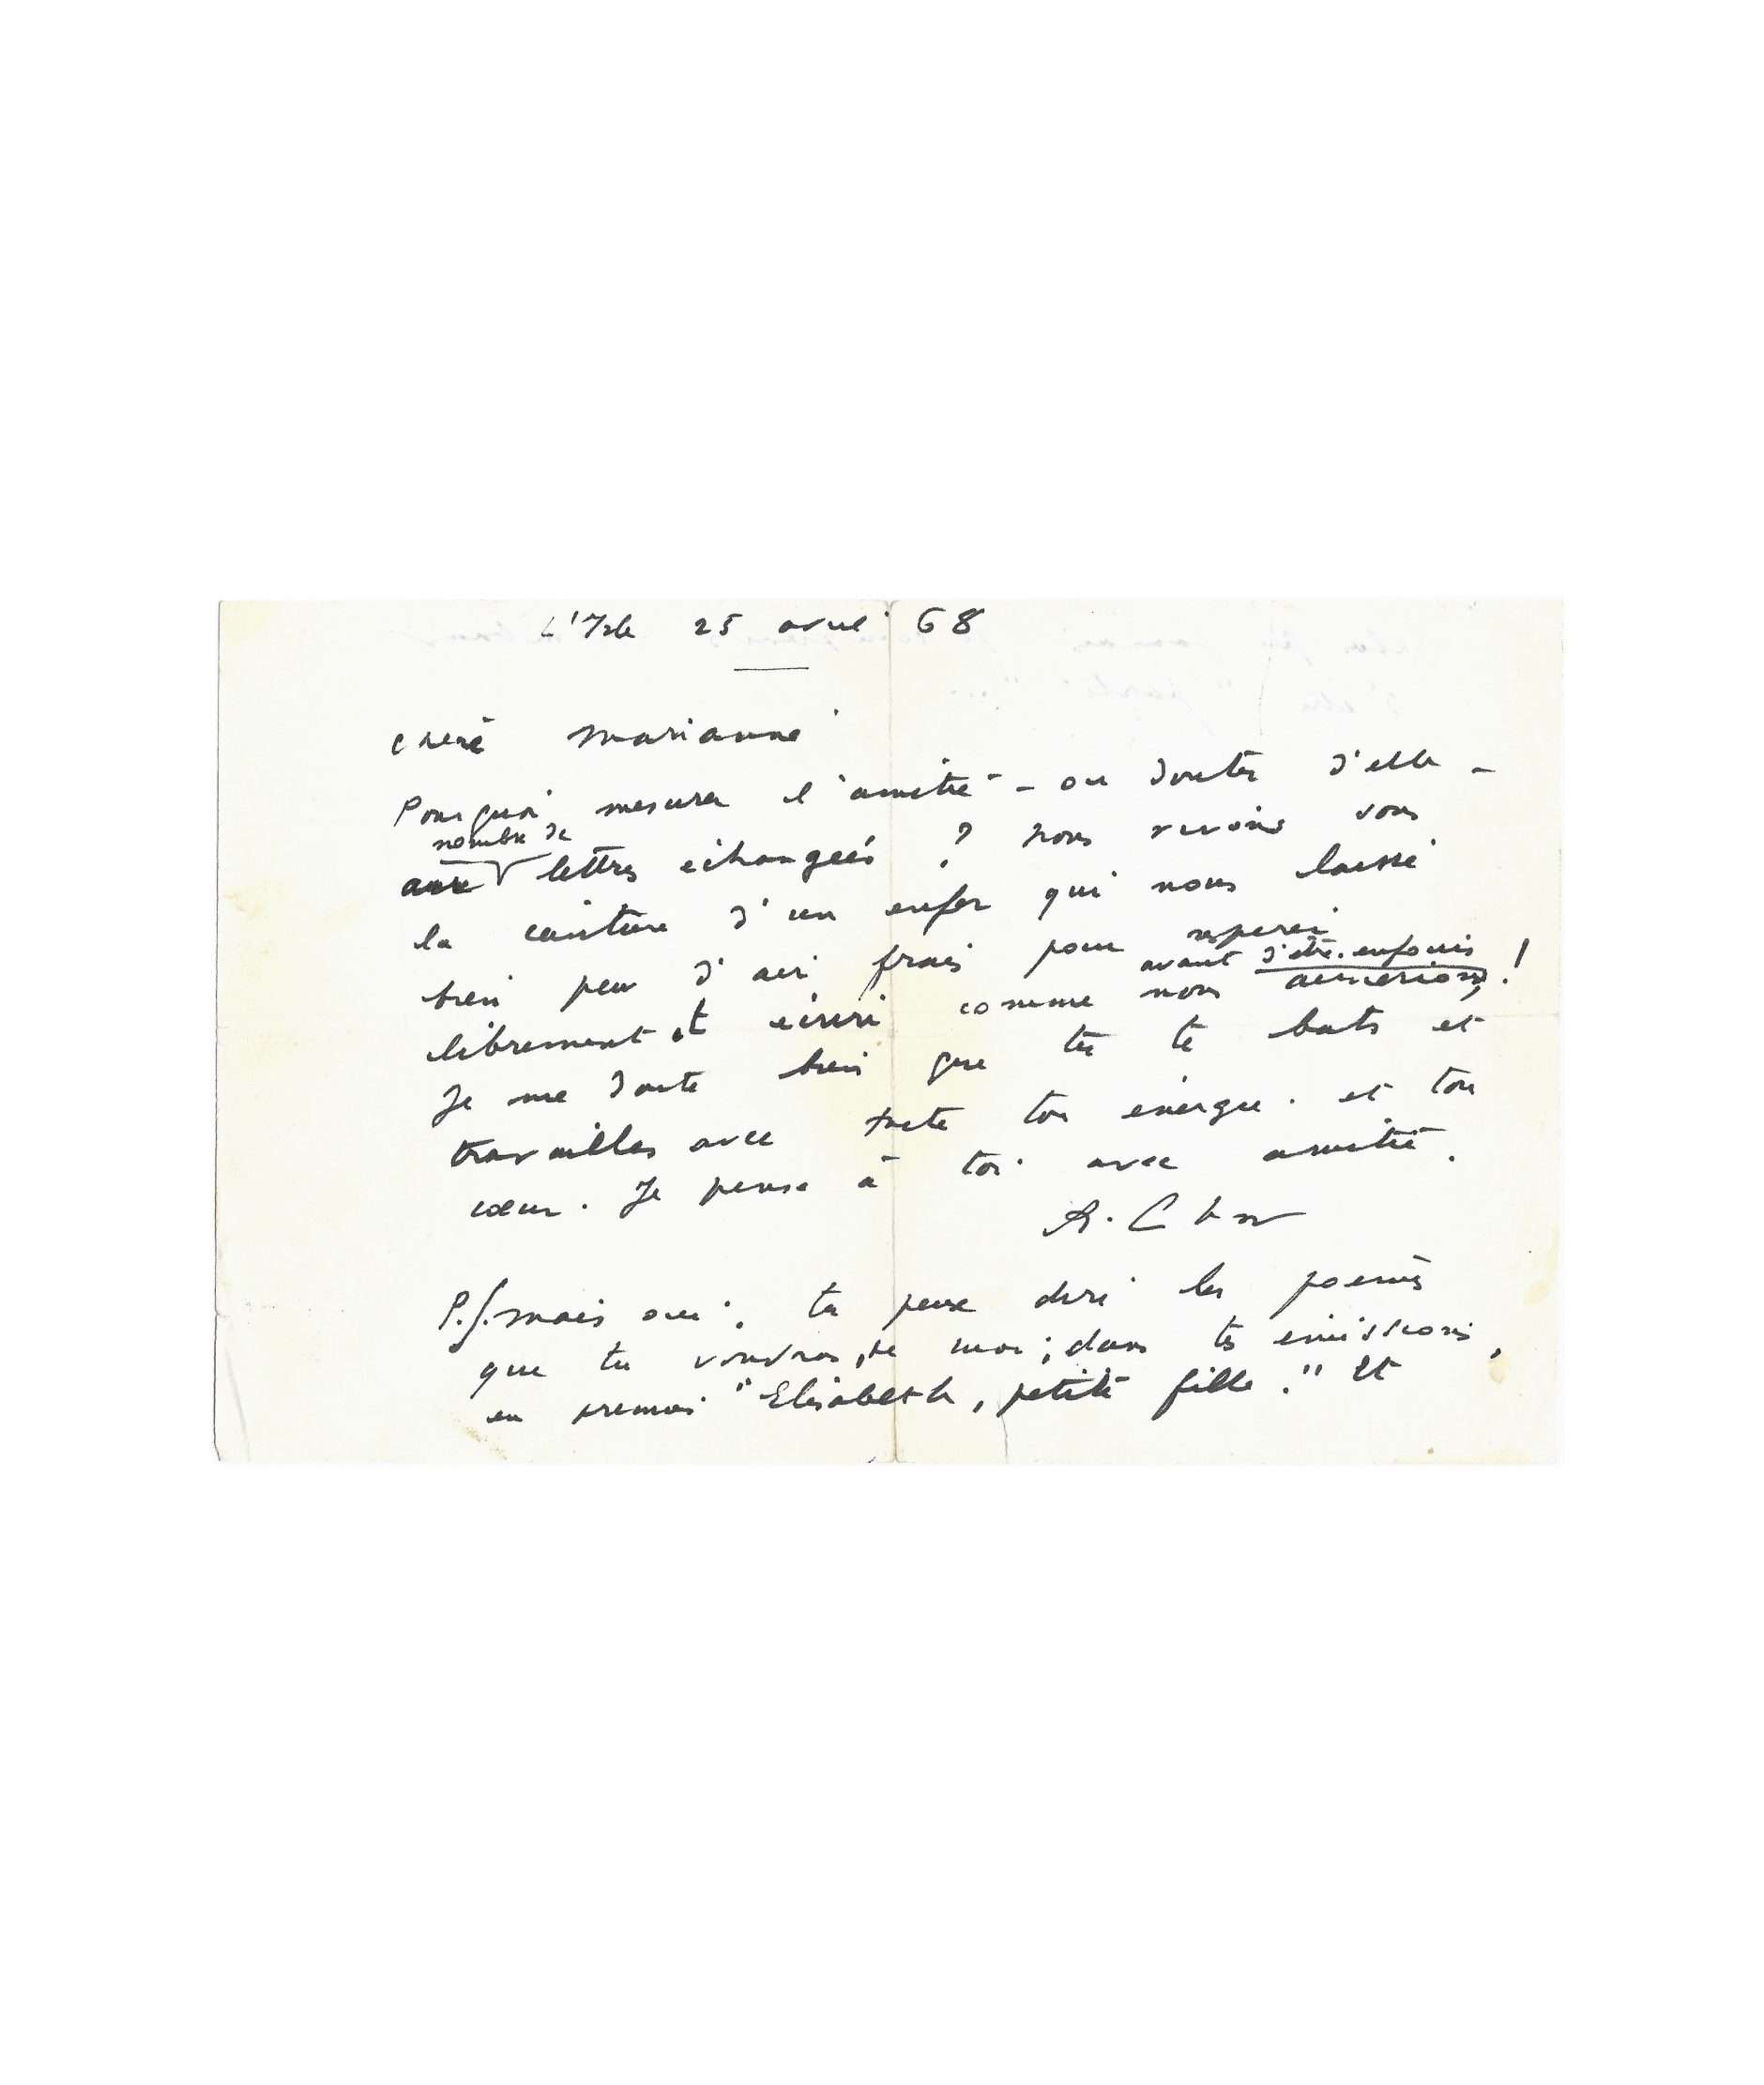 L'Isle 25 avril 68
Chère Marianne
Pourquoi mesurer l'amitié - ou douter d'elle -
nombre de
aux lettres échangées ? Nous vivons sous
la ceinture d'un enfer qui nous laisse
bien peu d'air frais pour respirer
avant d'être enfouis
librement et écrire comme nous aimerions !
Je me doute bien que tu te bats et
travailles avec toute ton énergie et ton
cœur. Je pense à toi avec amitié.
R. Char
P.S. mais oui, tu peux dire les poèmes
que tu voudras, de moi, dans tes émissions,
en premier "Elisabeth, petite fille." Et